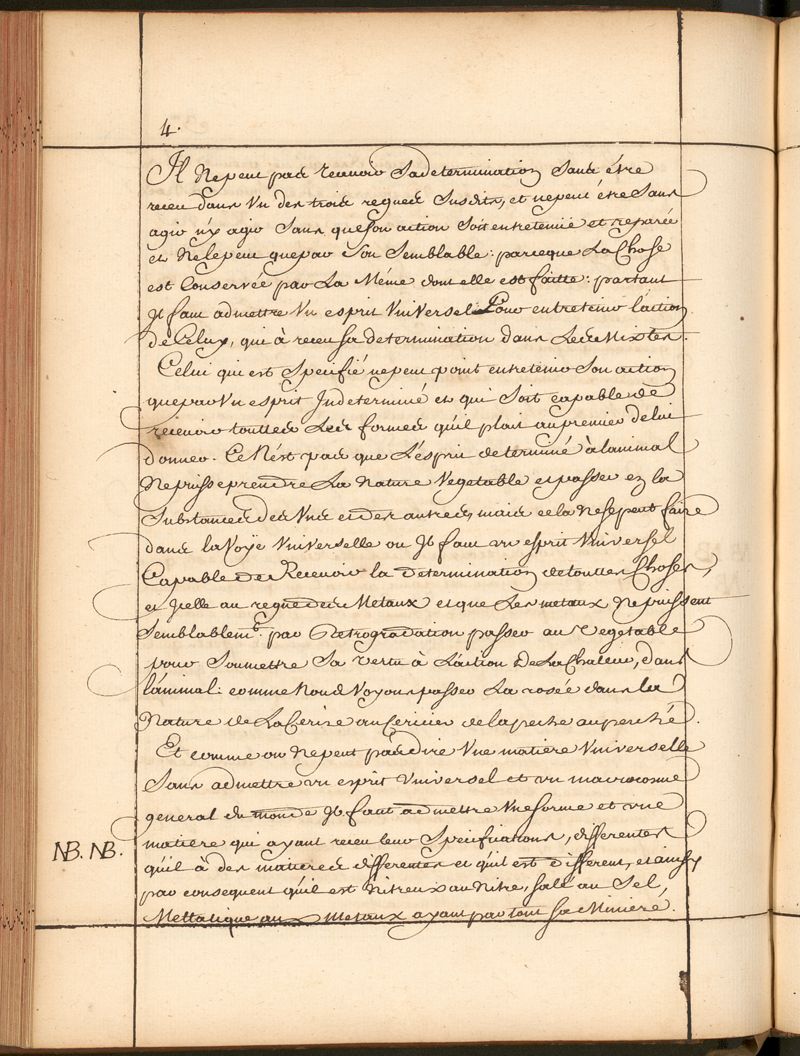 4.
Il Ne peut pas recevoir Sa determination Sans étre
receu dans Vn des trois regnes Susdits, et ne peut étre Sans
agir n'y agir Sans que Son action Soit entretenüe et reparée
et Ne le peut que par Son Semblable: parceque La Chose
est Conservée par La Méme dont elle est faitte: partant
Jl faut admettre Vn esprit Vniversel Pour entretenir l'action
de Celuy, qui à receu sa determination dans Les Mixtes.
Celui qui est Specifié ne peut point entretenir Son action
que par Vn esprit Jndeterminé et qui Soit capable de
recevoir touttes Les formes qu'il plait au premier de lui
donner. Ce N'ést pas que L'ésprit determiné à l'animal
Ne puisse prendre La Nature Vegetable et passer en la
Substances des Vns et des autres, mais cela Ne se peut faire
dans la Voÿe Vniverselle ou Jl faut vn esprit Vniversel
Capable de Recevoir la determination de touttes Choses,
et Jcelle au regne des Metaux et que Les metaux Ne puissent
Semblablemt. par Retrogradation passer au Vegetable
pour Soumettre Sa vertu à L'action De La Chaleur, dans
l'ánimal: comme Nous Voyons passer La rosée dans la
Nature de La Cerise au Cerisier de la peche au peché.
Et comme on Ne peut pas dire Vne matiére Vniverselle
Sans admettre vn esprit Vniversel et vn macrocosme
general du monde Jl faut admettre Vne forme et vne
matiére qui ayant receu leur Specifications, differentes
NB. NB. qu'il à des matieres differentes et qu'il est different, et ainsy
par consequent qu'il est Nitreux au Nitre, salé au Sel,
Mettalique aux Metaux ayant par tout sa Miniere.